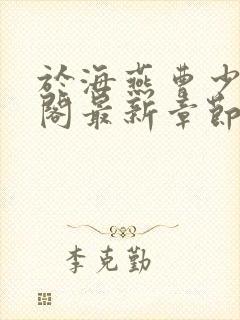 於海燕曹少
閣最新章節
李克勤